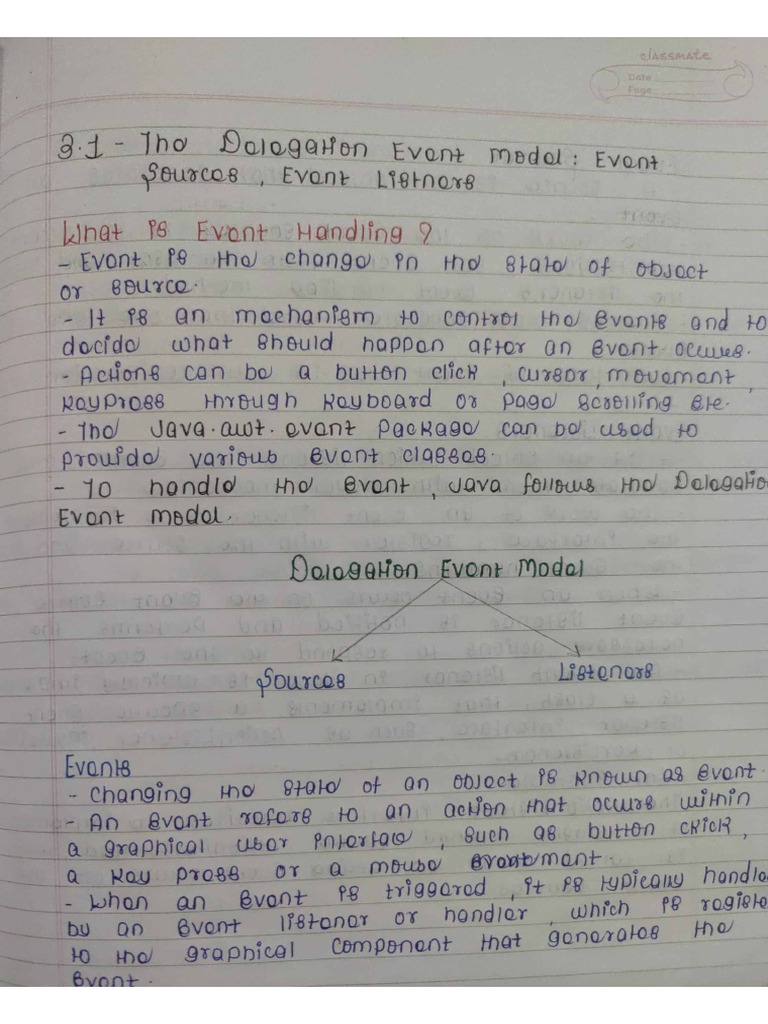 classmate
Date
Page
3.1 - The Delegation Event Model: Event
Sources, Event Listners
What is Event Handling ?
- Event is the change in the state of object
or source.
- It is an mechanism to control the events and to
decide what should happen after an event occures.
- Actions can be a button click, cursor, movement,
keypress through keyboard or page scrolling etc.
- The java.awt.event package can be used to
provide various event classes.
- To handle the event, java follows the Delegatio
Event model.
Delegation Event Model
Sources Listeners
Events
- Changing the state of an object is known as event.
- An event refers to an action that occurs within
a graphical user interface, such as button click,
a key press or a mouse
- When an event is triggered, it is typically handle
by an event listener or handler, which is registe
to the graphical component that generates the
event.